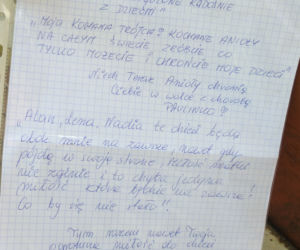 Z DZIEĆMI"
"MOJA KOCHANA TRÓJCA! KOCHANE ANIOŁY
NA CAŁYM ŚWIECIE, ZRÓBCIE CO
TYLKO MOŻECIE I CHROŃCIE MOJE DZIECI"
Niech Twoje Anioły chronią
Ciebie w walce z chorobą
"Alan, Lena, Nadia te dzieci będą
obok mnie na zawsze, nawet gdy
pójdą w swoje strone, miłość matki
nie zginie i to chyba jedyna
miłość która będzie na zawsze!
Co by się nie stało!!
Tym razem nawet Twoja
ogromna miłość do dzieci